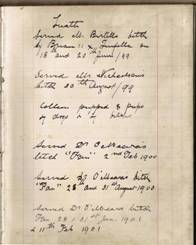 Served Mr Bartells bitch
by Brian
18th and 20th June /99
Served Mr Nicholsons
bitch 20th August /99
pupped 8 pups
dogs
Served Dr O'Meara's
bitch "Fan" 2nd Feb 1900
Served Dr O'Mearas bitch
"Fan" 28th and 31st August 1900
Served Dr O'Meara bitch
Fan 28 & 31st Jan 1901
& 11th Feb 1901